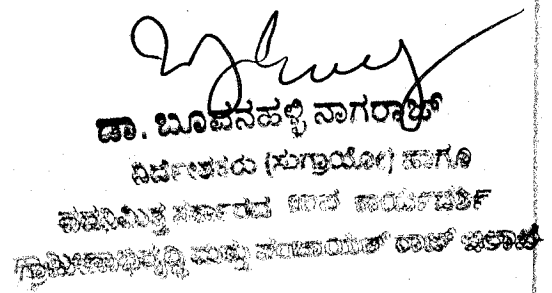 ಡಾ. ಬೂವನಹಳ್ಳಿ ನಾಗರಾಜ್
ನಿರ್ದೇಶಕರು (ಸುಗ್ರಾಯೋ) ಹಾಗೂ
ಪದನಿಮಿತ್ತ ಸರ್ಕಾರದ ಉಪ ಕಾರ್ಯದರ್ಶಿ
ಗ್ರಾಮೀಣಾಭಿವೃದ್ಧಿ ಮತ್ತು ಪಂಚಾಯತ್ ರಾಜ್ ಇಲಾಖೆ